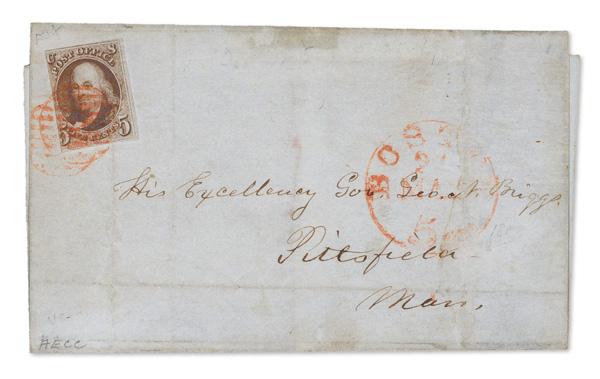 U S
POST OFFICE
5 FIVE CENTS 5
BOS
5
His Excellency Gov. Geo. N. Briggs
Pittsfield
Mass,
AECC